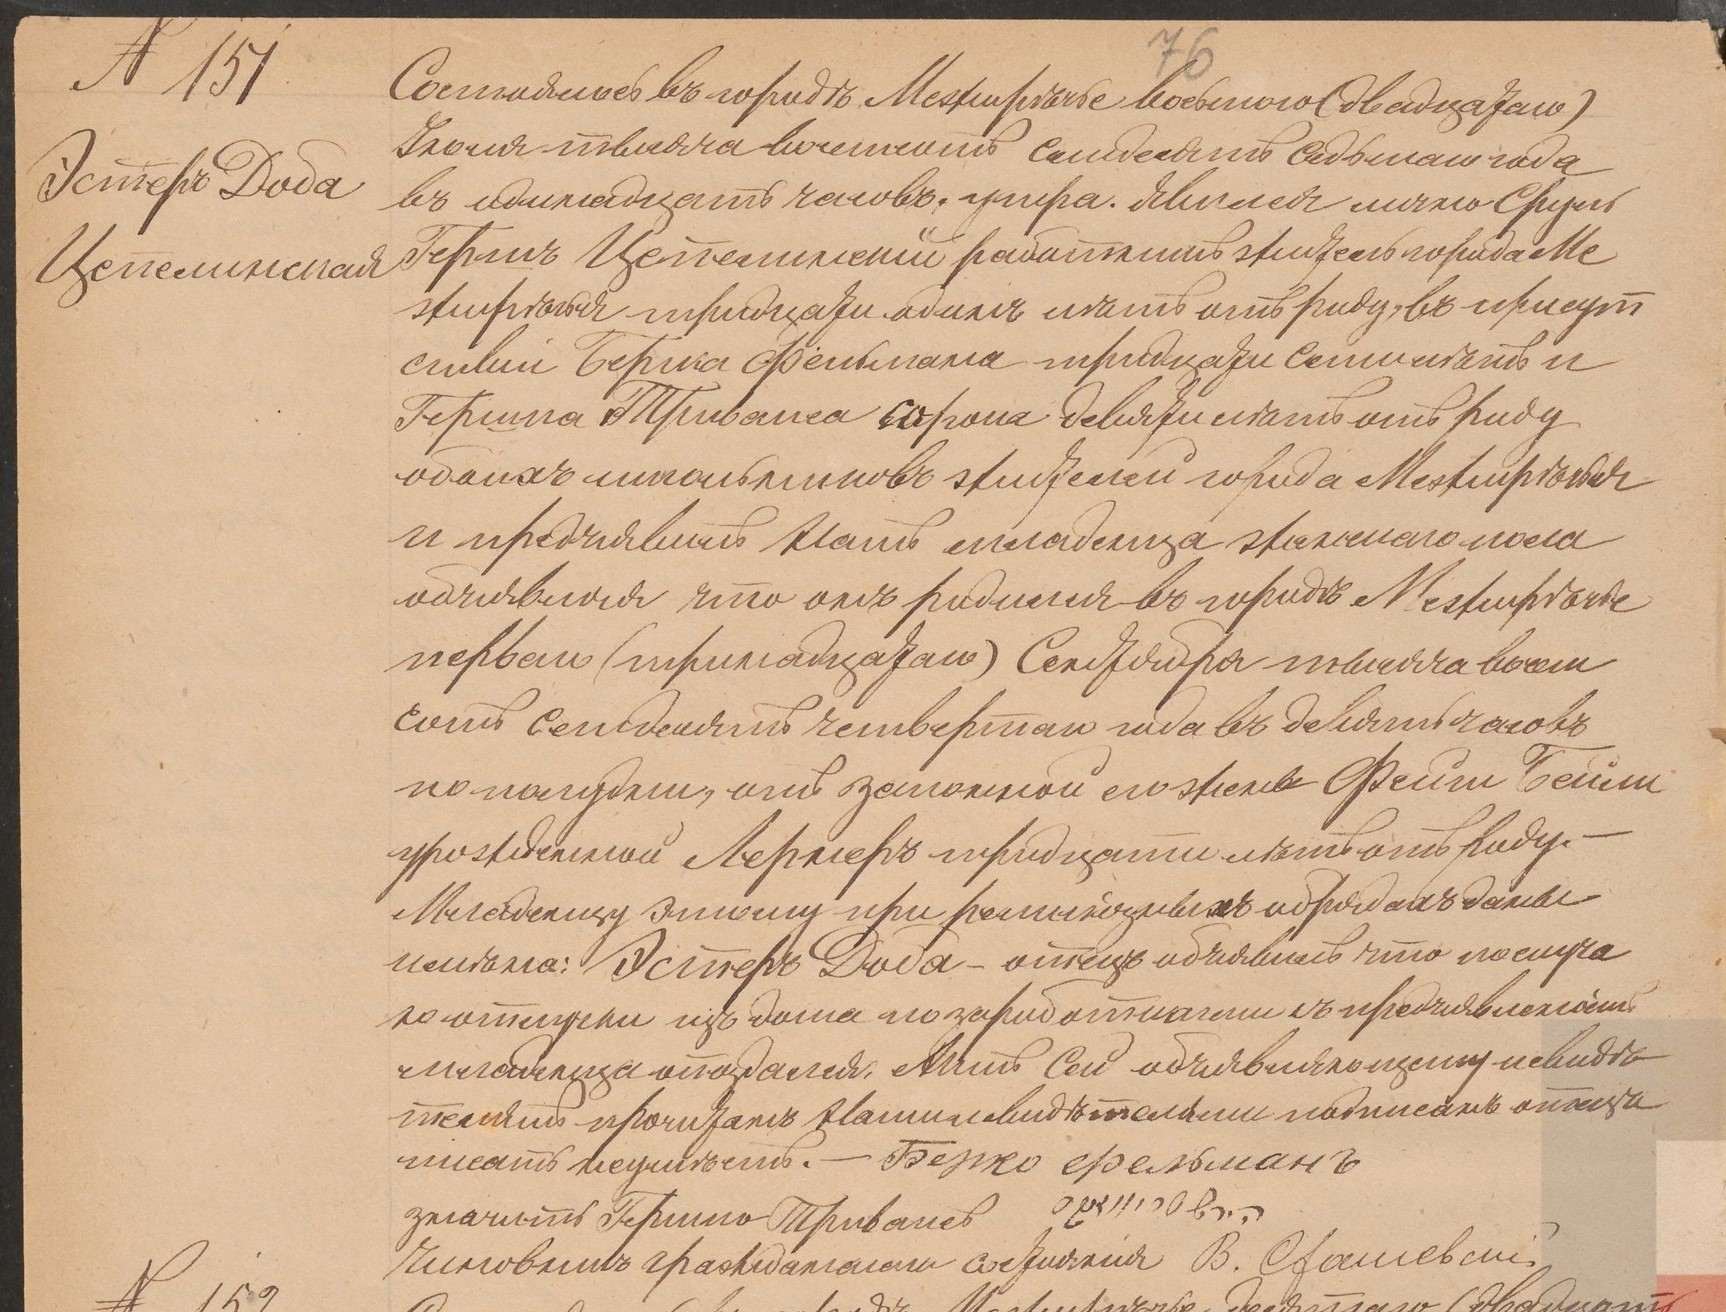 76
№ 151
Эстеръ Дода
Цепелинская
Состоялось въ городѣ Межирѣчье восьмого (двадцатаго)
Іюля тысяча восемьсотъ семдесятъ седьмаго года
въ одинадцать часовъ утра. Явился лично Сруль
Гершъ Цепелинскій работникъ житель города Ме
жирѣчья тридцати одинъ лѣтъ отъ роду, въ присут
ствіи Берка Фельмана тридцати семи лѣтъ и
Гершка Триванса сорока девяти лѣтъ отъ роду
обоихъ школьниковъ жителей города Межирѣчья
и предъявилъ Намъ младенца женскаго пола
объявляя что онъ родился въ городѣ Межирѣчье
перваго (тринадцатаго) Сентября тысяча восем
сотъ семдесятъ четвертаго года въ девять часовъ
по полудни, отъ законной его жены Фейги Бейли
урожденной Лернеръ тридцати лѣтъ отъ роду.—
Младенцу этому при религіозныхъ обрядахъ даны
имѣна: Эстеръ Дода — отецъ объявилъ что по случа
ю отлучки изъ дома по заработкамъ съ предъявленіемъ
младенца опоздался. Актъ сей объявляющему и свидѣ
телямъ прочитанъ Нами и свидѣтелями подписанъ отецъ
писать неумѣетъ. — Берко Фельманъ
значитъ Гершко Тривансъ
Чиновникъ гражданскаго состоянія В. Сташевскій
№ 152